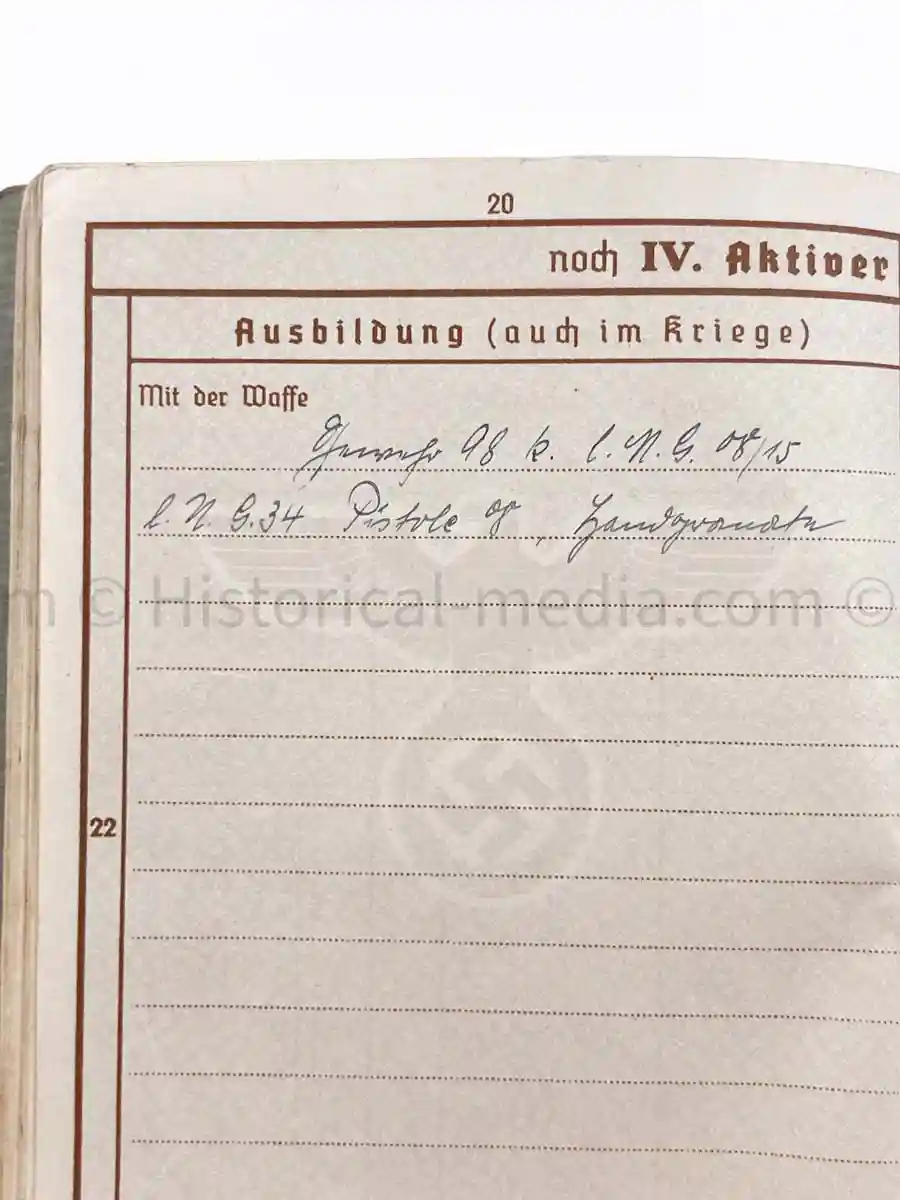 20
noch IV. Aktiver
Ausbildung (auch im Kriege)
Mit der Waffe
Gewehr 98 k. l. M. G. 08/15
l. M. G. 34 Pistole 08, Handgranate
m © Historical-media.com ©
22